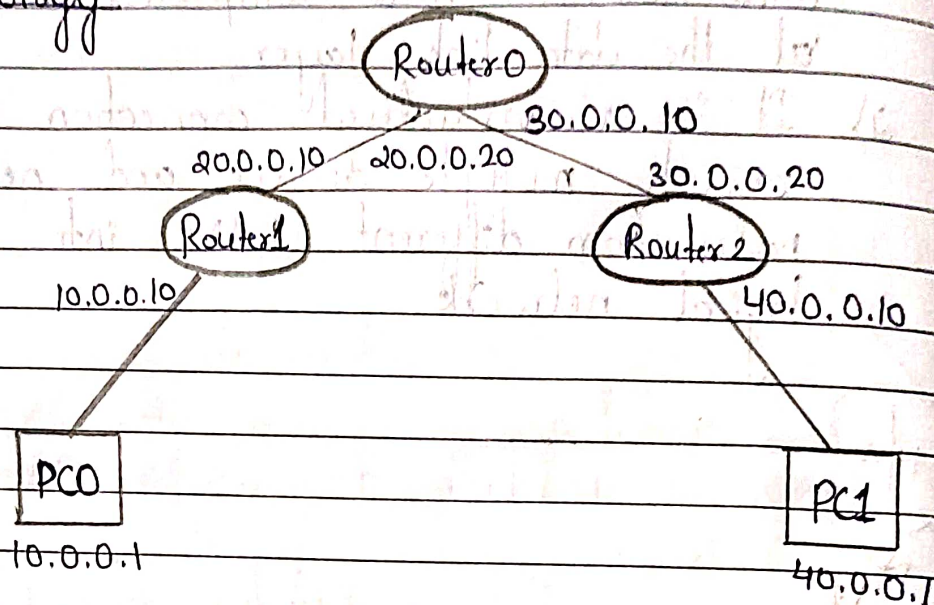 Router0
30.0.0.10
20.0.0.10 20.0.0.20
30.0.0.20
Router1
Router2
10.0.0.10
40.0.0.10
PC0
PC1
10.0.0.1
40.0.0.1